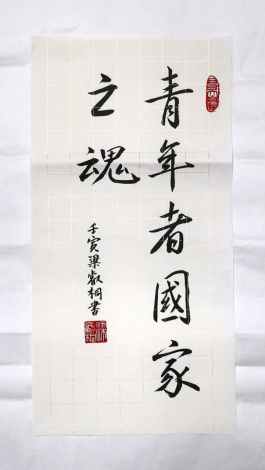 青年者國家
之魂
壬寅梁叡桐書